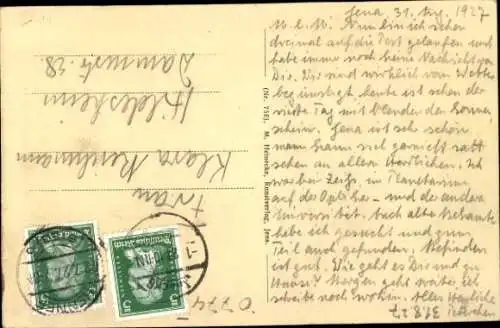 Jena, 31. Aug. 1927
M. l. M. Nun bin ich schon
dreimal auf die Post gelaufen und
habe immer noch keine Nachricht von
Dir. Wir sind wirklich vom Wetter
begünstigt, heute ist schon der
vierte Tag mit blendendem Sonnen-
schein. Jena ist sehr schön
man kann sich garnicht satt
sehen an allem Herrlichen. Ich
war bei Zeiss, im Planetarium
auf der und der andern
Universität. Auch alte Bekannte
habe ich gesucht und zum
Teil auch gefunden. Befinden
ist gut. Wie geht es Dir und zu
Hause? Morgen geht's weiter, ich
schreibe noch wohin. Alles Herzliche
31.8.27.
(Nr. 758). M. Heinecke, Kunstverlag, Jena.
Frau
Klara
Hildesheim
Dammstr. 38.
Deutsches Reich
5
5
0774